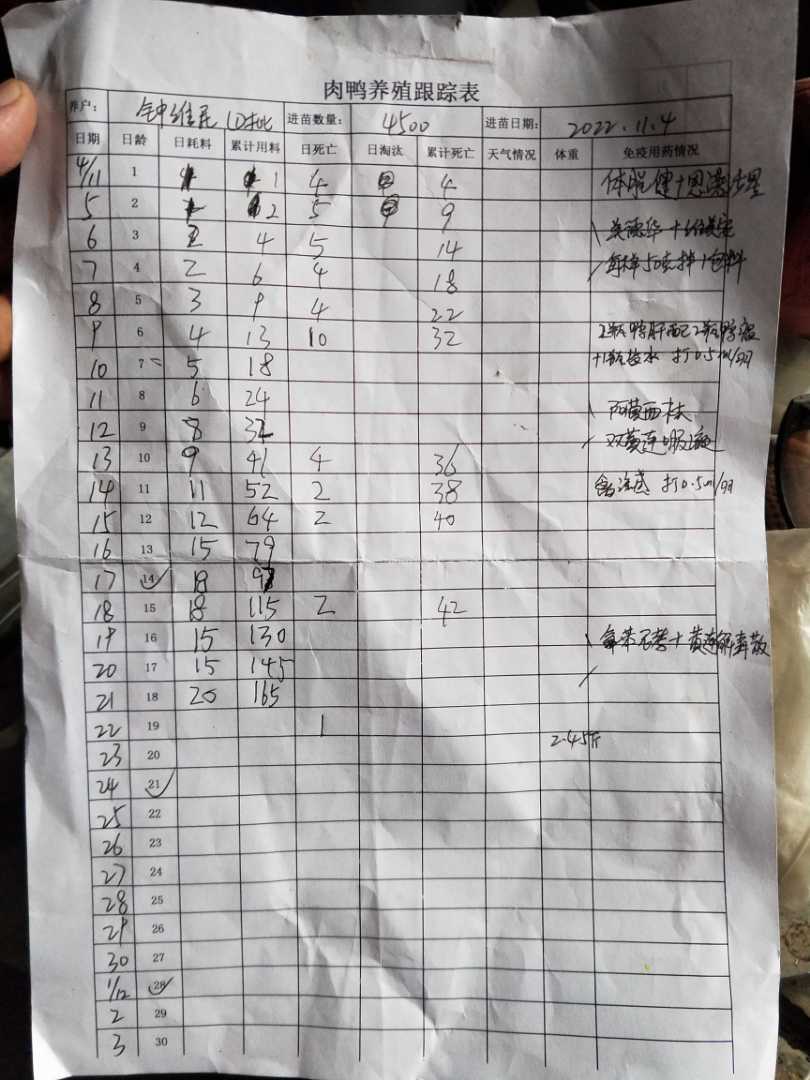 肉鸭养殖跟踪表
养户： 钟维 进苗数量： 4500 进苗日期： 2022.11.4
日期 日龄 日耗料 累计用料 日死亡 日淘汰 累计死亡 天气情况 体重 免疫用药情况
4/11 1 1 4 4
5 2 2 5 9
6 3 2 4 5 14
7 4 2 6 4 18 每样50克拌1包料
8 5 3 9 4 22
9 6 4 13 10 32 2瓶鸭肝配2瓶鸭瘟
10 7 5 18 打0.5ml/羽
11 8 6 24 阿莫西林
12 9 8 32 双黄连口服液
13 10 9 41 4 36
14 11 11 52 2 38 打0.5ml/羽
15 12 12 64 2 40
16 13 15 79
17 14 18 97
18 15 18 115 2 42
19 16 15 130 黄连解毒散
20 17 15 145
21 18 20 165
22 19 1 2.45斤
23 20
24 21
25 22
26 23
27 24
28 25
29 26
30 27
1/12 28
2 29
3 30